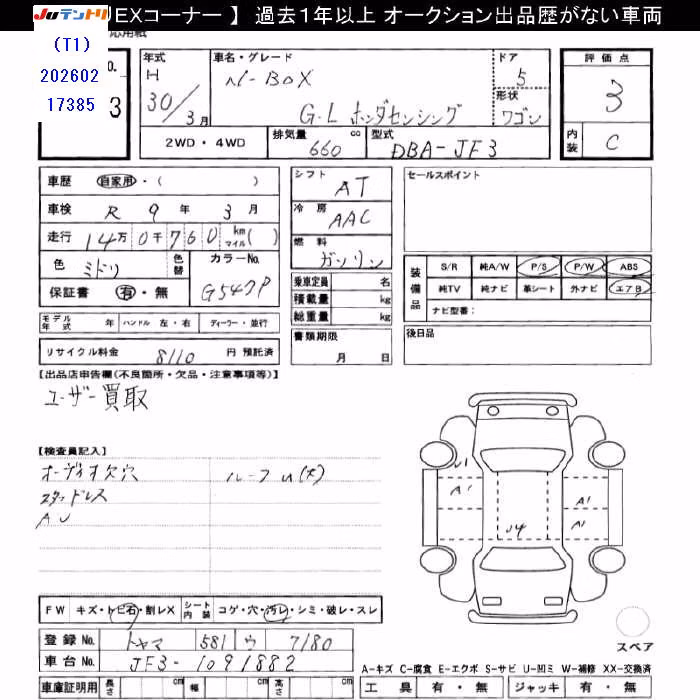 JUテントリ 【EXコーナー 】 過去1年以上 オークション出品歴がない車両
(T1)
202602
17385
No.
3
年式
H
30/3月
車名・グレード
N-BOX
G・L ホンダセンシング
ドア
5
形状
ワゴン
評価点
3
内装
C
2WD・4WD
排気量
660
cc
型式
DBA-JF3
車歴
自家用・( )
車検
R 9年 3月
走行
14万0千760
km
マイル( )
色
ミドリ
色替
カラーNo.
G547P
保証書
有・無
シフト
AT
冷房
AAC
燃料
ガソリン
乗車定員
名
積載量
kg
総重量
kg
セールスポイント
装備品
S/R 純A/W P/S P/W ABS
純TV 純ナビ 革シート 外ナビ エアB
ナビ型番:
モデル年式
年
ハンドル 左・右
ディーラー・並行
書類期限
月 日
後日品
リサイクル料金
8110
円 預託済
【出品店申告欄(不良箇所・欠品・注意事項等)】
ユーザー買取
【検査員記入】
オーディオ欠穴
ルーフU(大)
スタッドレス
AU
U1
A1
A1
A1
U4
FW
キズ・トビ石・割レX
シート内装
コゲ・穴・汚レ・シミ・破レ・スレ
登録No.
トヤマ
581
ウ
7180
車台No.
JF3-1091882
スペア
A-キズ C-腐食 E-エクボ S-サビ U-凹ミ W-補修 XX-交換済
車庫証明用
長さ
cm
幅
cm
高さ
cm
工具
有・無
ジャッキ
有・無